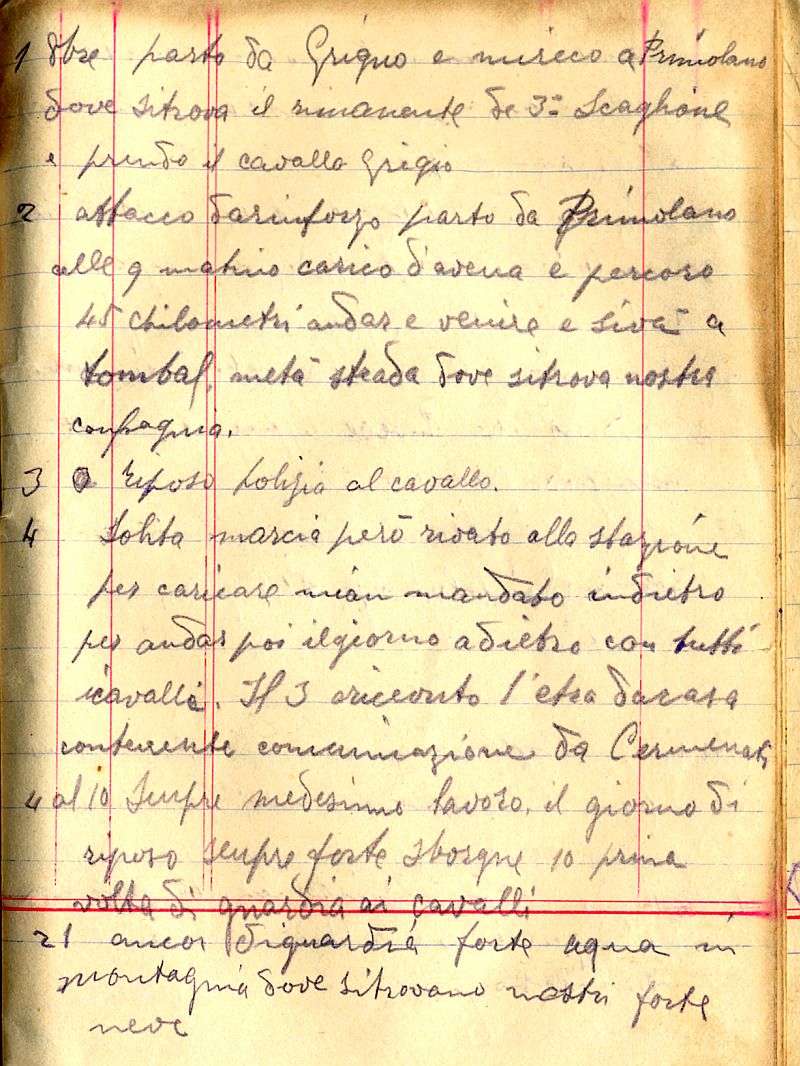 1 8bre parto da Grigno e mireco a Primolano
dove sitrova il rimanente de 3º Scaglione
e prendo il cavallo Grigio
2 attacco darinforzo parto da Primolano
alle 9 matino carico d'avena e percoro
45 chilometri andar e venire e sivà a
tombal, metà strada dove sitrova nostra
compagnia.
3 riposo polizia al cavallo.
4 Solita marcia però rivato alla stazione
per caricare mian mandato indietro
per andar poi ilgiorno adietro con tutti
icavalli. Il 3 oricevuto l'etra dacasa
contenente comunicazione da Cermenati
4 al 10 Sempre medesimo lavoro, il giorno di
riposo sempre forte 10 prima
volta di guardia ai cavalli
21 ancor diguardia forte aqua in
montagnia dove sitrovano nostri forte
neve